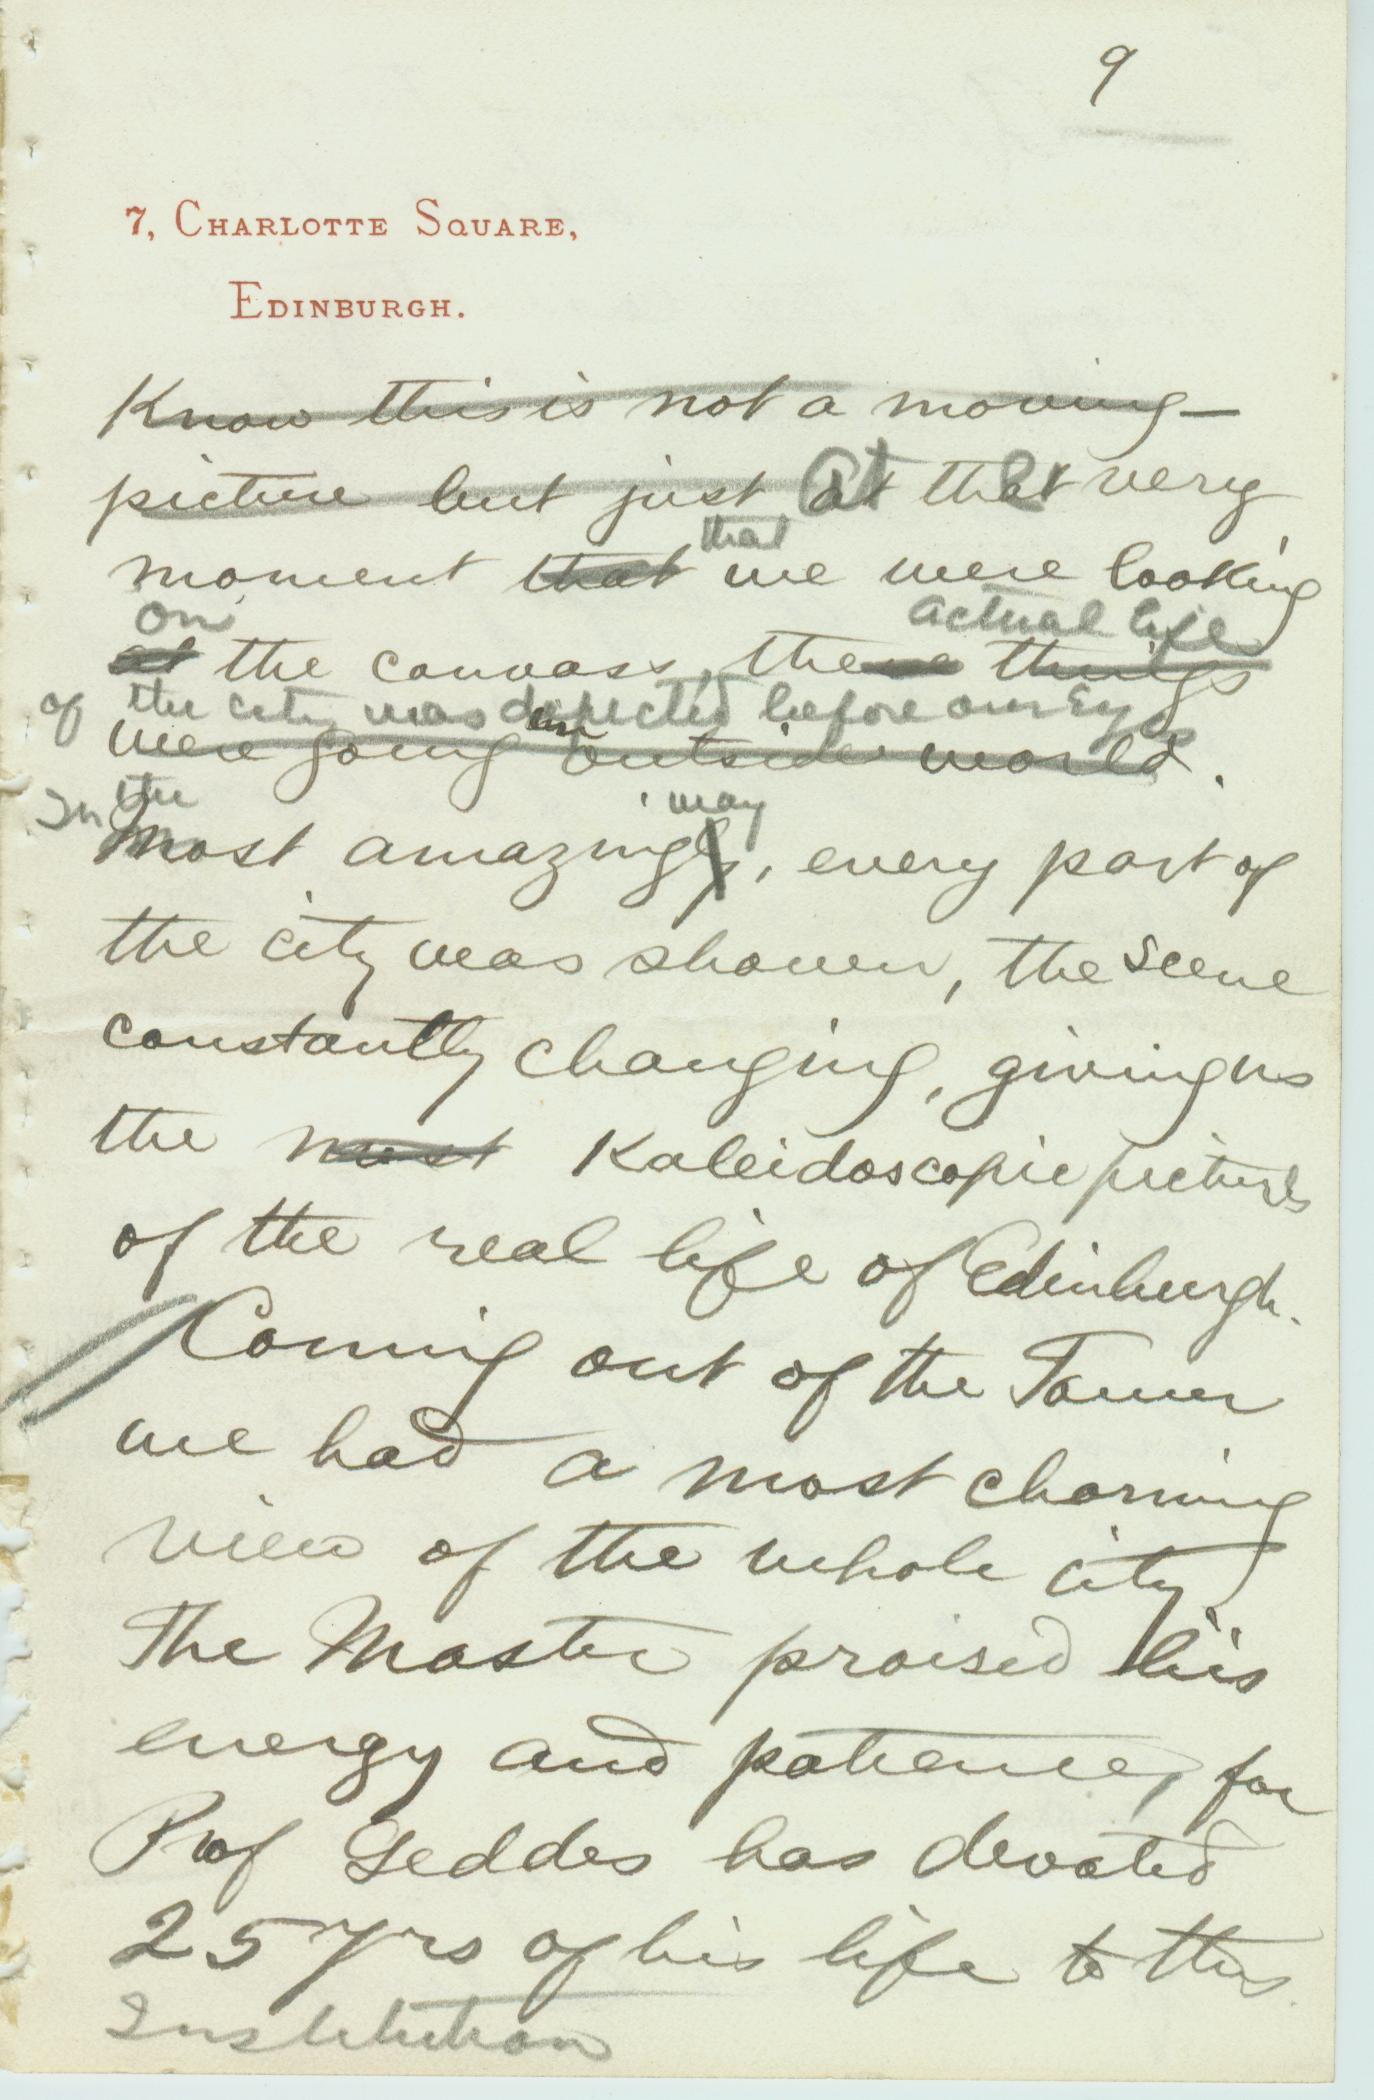 9
7, Charlotte Square,
Edinburgh.
Know this is not a moving-
picture but just At that very
that
moment that we were looking
on actual life
at the canvass, these things
of the city was depicted before our Eyes
in
were going outside world.
In the may
Most amazingly, every part of
the city was shown, the scene
constantly changing, giving us
the most Kaleidoscopic pictures
of the real life of Edinburgh.
Coming out of the Tower
we had a most charming
view of the whole city
The Master praised his
energy and patience, for
Prof Geddes has devoted
25 yrs of his life to this
Institution